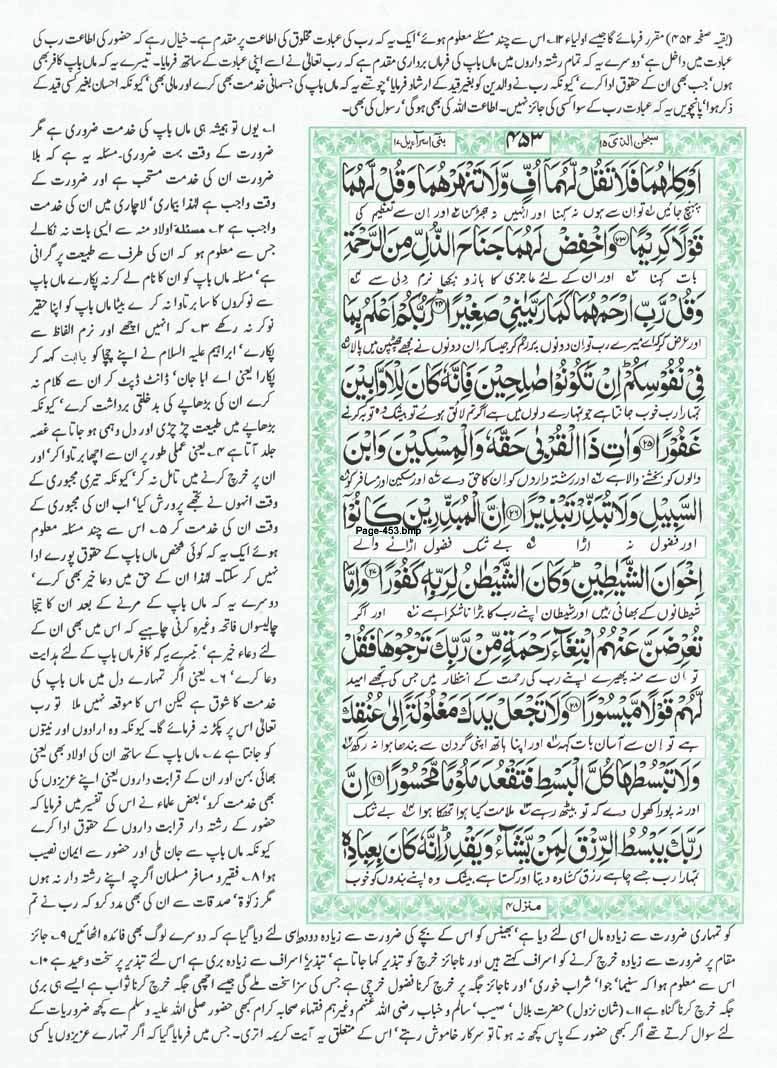 (بقیہ صفحہ ۴۵۲) مقرر فرمائے گا جیسے اولیاء ۱۲؎ اس سے چند مسئلے معلوم ہوئے' ایک یہ کہ رب کی عبادت مخلوق کی اطاعت پر مقدم ہے۔ خیال رہے کہ حضور کی اطاعت رب کی
عبادت میں داخل ہے' دوسرے یہ کہ تمام رشتہ داروں میں ماں باپ کی فرماں برداری مقدم ہے کہ رب تعالیٰ نے اسے اپنی عبادت کے ساتھ فرمایا۔ تیسرے یہ کہ ماں باپ کافر بھی
ہوں' جب بھی ان کے حقوق ادا کرے' کیونکہ رب نے والدین کو بغیر قید کے ارشاد فرمایا' چوتھے یہ کہ ماں باپ کی جسمانی خدمت بھی کرے اور مالی بھی' کیونکہ احسان بغیر کسی قید کے
ذکر ہوا' پانچویں یہ کہ عبادت رب کے سوا کسی کی جائز نہیں۔ اطاعت اللہ کی بھی ہو گی' رسول کی بھی۔
سبحٰن الذی ۱۵
۴۵۳
بنی اسرآءیل ۱۷
اَوْ كِلٰهُمَا فَلَا تَقُلْ لَّهُمَاۤ اُفٍّ وَّ لَا تَنْهَرْهُمَا وَ قُلْ لَّهُمَا
پہنچ جائیں تو ان سے ہوں نہ کہنا اور انہیں نہ جھڑکنا اور ان سے تعظیم کی
قَوْلًا كَرِیْمًا ﴿۲۳﴾ وَ اخْفِضْ لَهُمَا جَنَاحَ الذُّلِّ مِنَ الرَّحْمَةِ
بات کہنا اور ان کے لئے عاجزی کا بازو بچھا نرم دلی سے
وَ قُلْ رَّبِّ ارْحَمْهُمَا كَمَا رَبَّیٰنِیْ صَغِیْرًا ﴿۲۴﴾ رَبُّكُمْ اَعْلَمُ بِمَا
اور عرض کر کہ اے میرے رب تو ان دونوں پر رحم کر جیسا کہ ان دونوں نے مجھے چھٹپن میں پالا
فِیْ نُفُوْسِكُمْ اِنْ تَكُوْنُوْا صٰلِحِیْنَ فَاِنَّهٗ كَانَ لِلْاَوَّابِیْنَ
تمہارا رب خوب جانتا ہے جو تمہارے دلوں میں ہے اگر تم لائق ہوئے تو بیشک وہ توبہ کرنے
غَفُوْرًا ﴿۲۵﴾ وَ اٰتِ ذَا الْقُرْبٰى حَقَّهٗ وَ الْمِسْكِیْنَ وَ ابْنَ
والوں کو بخشنے والا ہے اور رشتہ داروں کو ان کا حق دے اور مسکین اور مسافر کو
السَّبِیْلِ وَ لَا تُبَذِّرْ تَبْذِیْرًا ﴿۲۶﴾ اِنَّ الْمُبَذِّرِیْنَ كَانُوْۤا
Page-453.bmp
اور فضول نہ اڑا بے شک فضول اڑانے والے
اِخْوَانَ الشَّیٰطِیْنِ وَ كَانَ الشَّیْطٰنُ لِرَبِّهٖ كَفُوْرًا ﴿۲۷﴾ وَ اِمَّا
شیطانوں کے بھائی ہیں اور شیطان اپنے رب کا بڑا ناشکرا ہے اور اگر
تُعْرِضَنَّ عَنْهُمُ ابْتِغَآءَ رَحْمَةٍ مِّنْ رَّبِّكَ تَرْجُوْهَا فَقُلْ
تو ان سے منہ پھیرے اپنے رب کی رحمت کے انتظار میں جس کی تجھے امید
لَّهُمْ قَوْلًا مَّیْسُوْرًا ﴿۲۸﴾ وَ لَا تَجْعَلْ یَدَكَ مَغْلُوْلَةً اِلٰى عُنُقِكَ
ہے تو ان سے آسان بات کہہ اور اپنا ہاتھ اپنی گردن سے بندھا ہوا نہ رکھ
وَ لَا تَبْسُطْهَا كُلَّ الْبَسْطِ فَتَقْعُدَ مَلُوْمًا مَّحْسُوْرًا ﴿۲۹﴾ اِنَّ
اور نہ پورا کھول دے کہ تو بیٹھ رہے ملامت کیا ہوا تھکا ہوا بے شک
رَبَّكَ یَبْسُطُ الرِّزْقَ لِمَنْ یَّشَآءُ وَ یَقْدِرُ اِنَّهٗ كَانَ بِعِبَادِهٖ
تمہارا رب جسے چاہے رزق کشادہ دیتا اور کستا ہے بیشک وہ اپنے بندوں کو خوب
منزل ۴
۱؎ یوں تو ہمیشہ ہی ماں باپ کی خدمت ضروری ہے مگر
ضرورت کے وقت بہت ضروری۔ مسئلہ یہ ہے کہ بلا
ضرورت ان کی خدمت مستحب ہے اور ضرورت کے
وقت واجب ہے لہٰذا بیماری' لاچاری میں ان کی خدمت
واجب ہے ۲؎ مسئلہ اولاد منہ سے ایسی بات نہ نکالے
جس سے معلوم ہو کہ ان کی طرف سے طبیعت پر گرانی
ہے' مسئلہ ماں باپ کو ان کا نام لے کر نہ پکارے ماں باپ
سے نوکروں کا سا برتاوا نہ کرے بیٹا ماں باپ کو اپنا حقیر
نوکر نہ رکھے ۳؎ کہ انہیں اچھے اور نرم الفاظ سے
پکارے' ابراہیم علیہ السلام نے اپنے چچا کو یاابت کہہ کر
پکارا یعنی اے ابا جان' ڈانٹ ڈپٹ کر ان سے کلام نہ
کرے ان کی بڑھاپے کی بدخلقی برداشت کرے' کیونکہ
بڑھاپے میں طبیعت چڑچڑی اور دل وہمی ہو جاتا ہے غصہ
جلد آتا ہے ۴؎ یعنی عملی طور پر ان سے اچھا برتاوا کر' اور
ان پر خرچ کرنے میں تامل نہ کر' کیونکہ تیری مجبوری کے
وقت انہوں نے تجھے پرورش کیا' اب ان کی مجبوری کے
وقت ان کی خدمت کر ۵؎ اس سے چند مسئلہ معلوم
ہوئے ایک یہ کہ کوئی شخص ماں باپ کے حقوق پورے ادا
نہیں کر سکتا۔ لہٰذا ان کے حق میں دعا خیر بھی کرے'
دوسرے یہ کہ ماں باپ کے مرنے کے بعد ان کا تیجا
چالیسواں فاتحہ وغیرہ کرنی چاہیے کہ اس میں بھی ان کے
لئے دعاء خیر ہے' تیسرے یہ کہ کافر ماں باپ کے لئے ہدایت
دعا کرے' ۶؎ یعنی اگر تمہارے دل میں ماں باپ کی
خدمت کا شوق ہے لیکن اس کا موقعہ نہیں ملا تو رب
تعالیٰ اس پر پکڑ نہ فرمائے گا۔ کیونکہ وہ ارادوں اور نیتوں
کو جانتا ہے ۷؎ ماں باپ کے ساتھ ان کی اولاد بھی یعنی
بھائی بہن اور ان کے قرابت داروں یعنی اپنے عزیزوں کی
بھی خدمت کرو' بعض علماء نے اس کی تفسیر میں فرمایا کہ
حضور کے رشتہ دار قرابت داروں کے حقوق ادا کرے
کیونکہ ماں باپ سے جان ملی اور حضور سے ایمان نصیب
ہوا ۸؎ فقیر و مسافر مسلمان اگرچہ اپنے رشتہ دار نہ ہوں
مگر زکوٰۃ' صدقات سے ان کی بھی مدد کرو کہ رب نے تم
کو تمہاری ضرورت سے زیادہ مال اسی لئے دیا ہے' بھینس کو اس کے بچے کی ضرورت سے زیادہ دودھ اسی لئے دیا گیا ہے کہ دوسرے لوگ بھی فائدہ اٹھائیں ۹؎ جائز
مقام پر ضرورت سے زیادہ خرچ کرنے کو اسراف کہتے ہیں اور ناجائز خرچ کو تبذیر کہا جاتا ہے' تبذیر' اسراف سے زیادہ بری ہے اس لئے تبذیر پر سخت وعید ہے ۱۰؎
اس سے معلوم ہوا کہ سنیما' جوا' شراب خوری' اور ناجائز جگہ پر خرچ کرنا فضول خرچی ہے جس کی سزا سخت ملے گی جیسے اچھی جگہ خرچ کرنا ثواب ہے ایسے ہی بری
جگہ خرچ کرنا گناہ ہے ۱۱؎ (شان نزول) حضرت بلال' صہیب' سالم و خباب رضی اللہ عنہم وغیرہم فقہاء صحابہ کرام کبھی حضور صلی اللہ علیہ وسلم سے کچھ ضروریات کے
لئے سوال کرتے تھے اگر کبھی حضور کے پاس کچھ نہ ہوتا تو سرکار خاموش رہتے' اس کے متعلق یہ آیت کریمہ اتری۔ جس میں فرمایا گیا کہ اگر تمہارے عزیزوں یا کسی